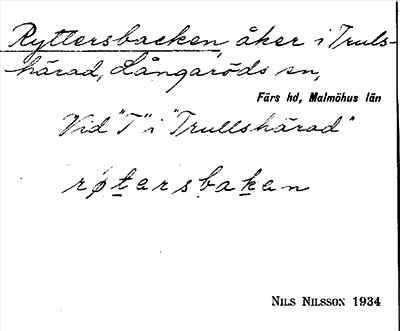 Ryttersbacken, åker i Truls-
härad, Långaröds sn,
Färs hd, Malmöhus län
Vid "T" i "Trullshärad"
rø̱ṯarsba̱ḵan
NILS NILSSON 1934